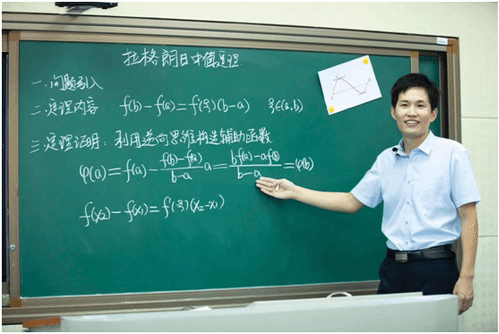 拉格朗日中值定理
一.问题引入
二.定理内容 f(b)-f(a)=f'(ξ)(b-a) ξ∈(a,b)
三.定理证明：利用逆向思维构造辅助函数
φ(a)=f(a)-\frac{f(b)-f(a)}{b-a}a=\frac{bf(a)-af(b)}{b-a}=φ(b)
f(x₂)-f(x₁)=f'(ξ)(x₂-x₁)